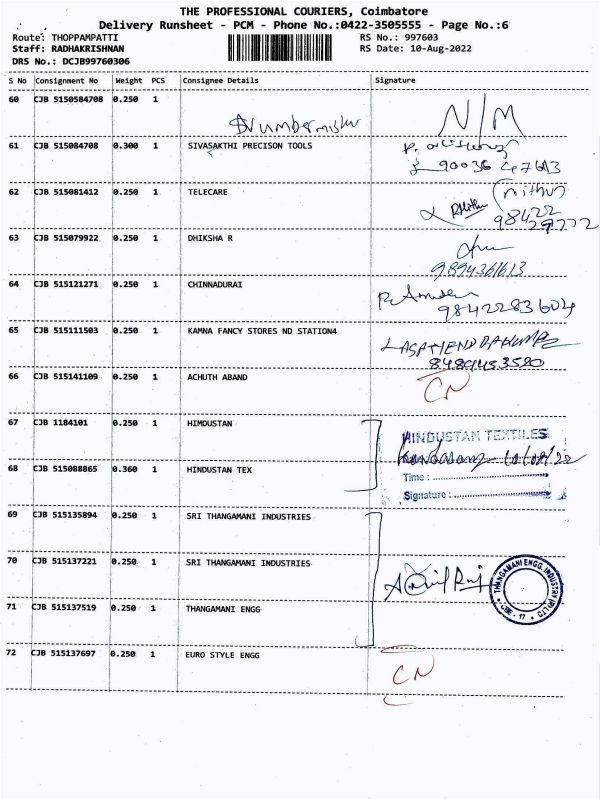 THE PROFESSIONAL COURIERS, Coimbatore
Delivery Runsheet - PCM - Phone No.:0422-3505555 - Page No.:6
Route: THOPPAMPATTI RS No.: 997603
Staff: RADHAKRISHNAN RS Date: 10-Aug-2022
DRS No.: DCJB99760306
S No Consignment No Weight PCS Consignee Details Signature
60 CJB 5150584708 0.250 1 N/M
Number mister
61 CJB 515084708 0.300 1 SIVASAKTHI PRECISON TOOLS
90036 47613
62 CJB 515081412 0.250 1 TELECARE Mithun
98422
63 CJB 515079922 0.250 1 DHIKSHA R
9894361613
64 CJB 515121271 0.250 1 CHINNADURAI
9842283604
65 CJB 515111503 0.250 1 KAMNA FANCY STORES ND STATION4
8489453580
66 CJB 515141109 0.250 1 ACHUTH ABAND CN
67 CJB 1184101 0.250 1 HIMDUSTAN HINDUSTAN TEXTILES
10/08/22
68 CJB 515088865 0.360 1 HINDUSTAN TEX Time :
Signature :
69 CJB 515135894 0.250 1 SRI THANGAMANI INDUSTRIES
70 CJB 515137221 0.250 1 SRI THANGAMANI INDUSTRIES
THANGAMANI ENGG. INDUSTRY (P) LTD CBE - 17
71 CJB 515137519 0.250 1 THANGAMANI ENGG
72 CJB 515137697 0.250 1 EURO STYLE ENGG CN